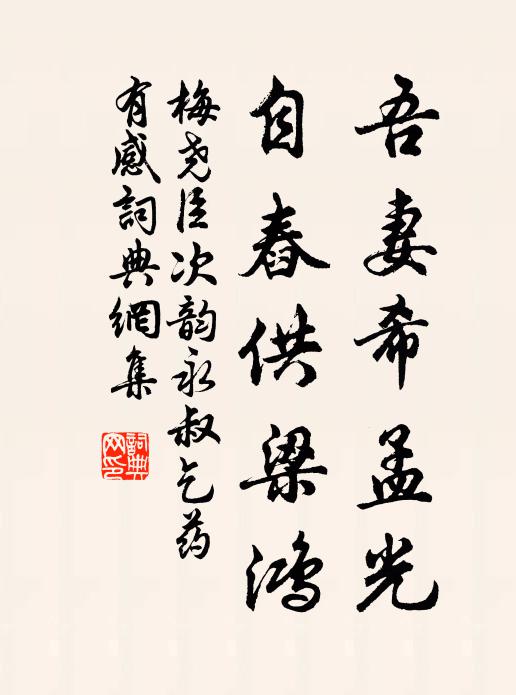 吾妻希孟光
自舂供梁鴻
梅尧臣次韵永叔乞药
有感詞典網集
詞典网印